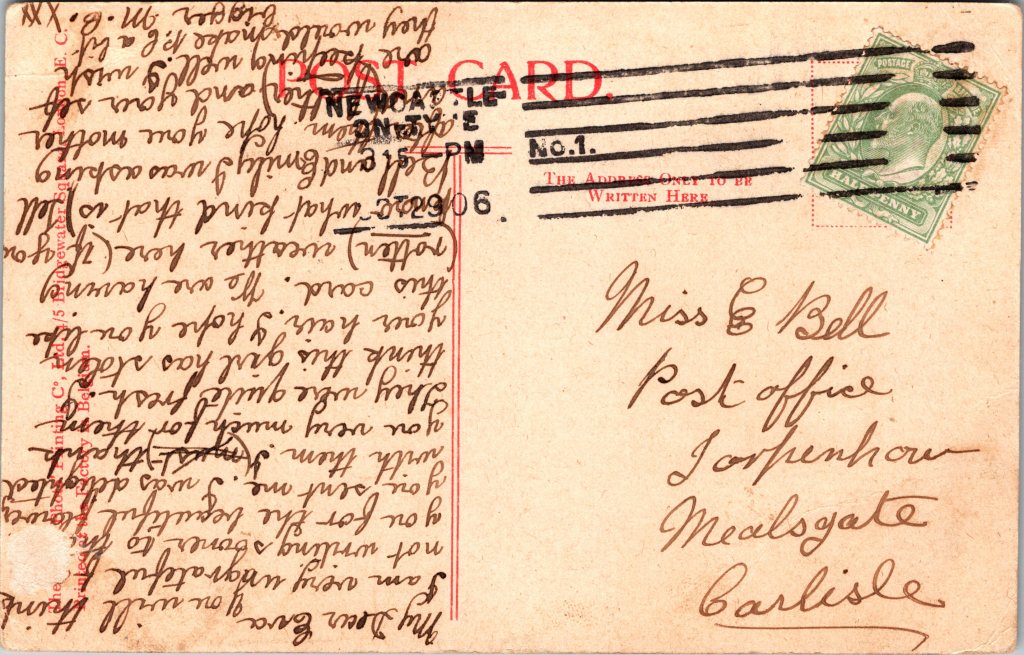 POST CARD.
NEWCASTLE
ON-TYNE
15 PM
NO.1.
29 06
POSTAGE
HALFPENNY
THE ADDRESS ONLY TO BE
WRITTEN HERE
Miss E Bell
Post office
Torpenhow
Mealsgate
Carlisle
My Dear Eva
you will think
I am very ungrateful
not writing sooner to
you for the beautiful flowers
you sent me. I was delighted
with them I (must) thank
you very much for them
They were quite fresh. I
think this girl has stolen
your hair. I hope you like
this card. We are having
(rotten) weather here (if you
know what kind that is) Tell
Bell and Emily I was asking
after them hope you mother
father) and your self
are keeping well. I wish
they would make p.c a bit
bigger M.B.
xxx
The Printing Co, Ltd, 4/5 Bridgewater Square, London E. C.
Printed at the Factory Belgium.